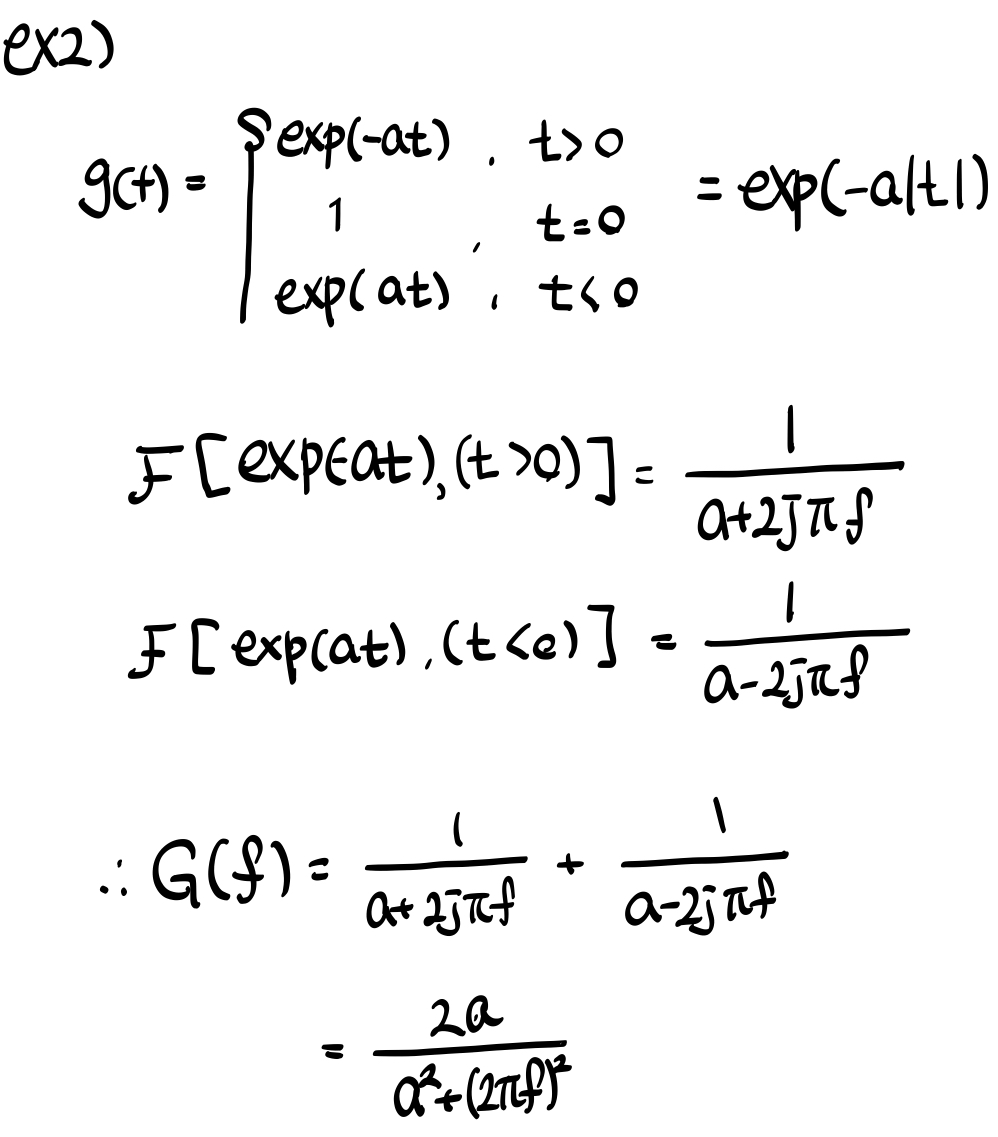 ex2)
g(t) = { exp(-at) , t>0
1 , t=0 = exp(-a|t|)
exp(at) , t<0
F[exp(-at),(t>0)] = 1/(a+2jπf)
F[exp(at),(t<0)] = 1/(a-2jπf)
∴ G(f) = 1/(a+2jπf) + 1/(a-2jπf)
= 2a/(a²+(2πf)²)